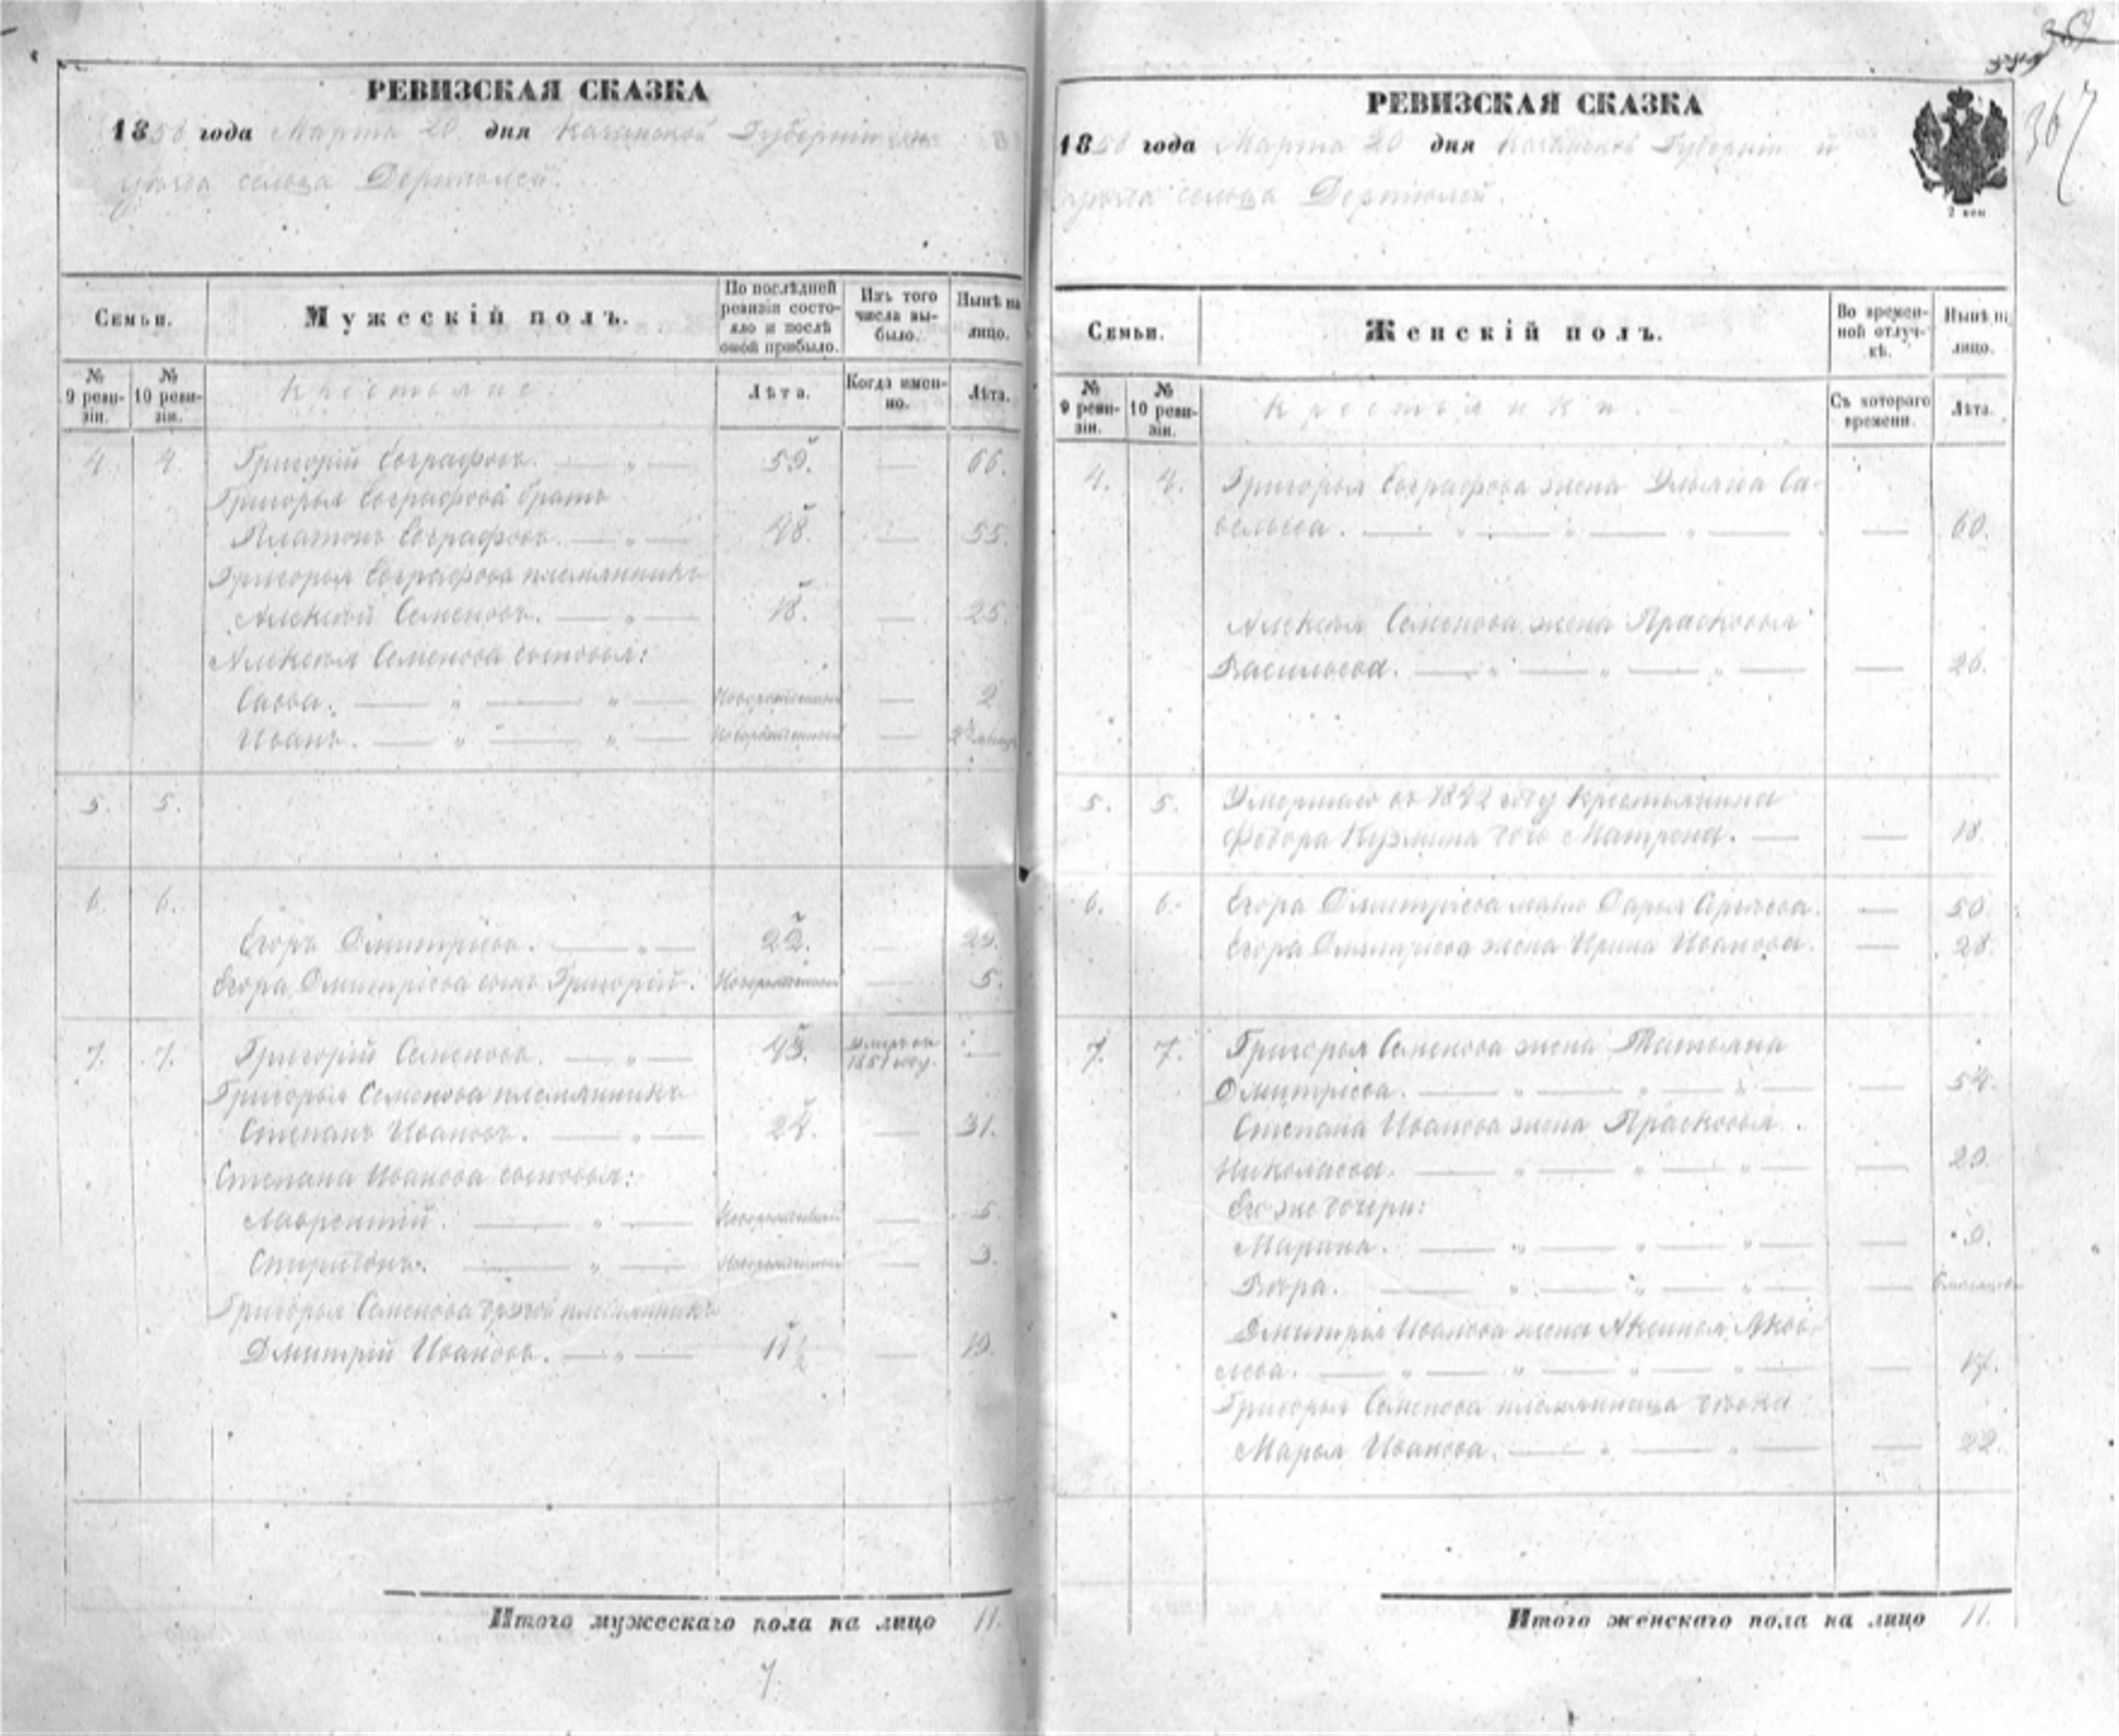 РЕВИЗСКАЯ СКАЗКА
1858 года Марта 20 дня Казанской Губерніи
уѣзда сельца Дертюлей.
Семьи.
Мужескій полъ.
По послѣдней ревизіи состояло и послѣ оной прибыло.
Изъ того числа выбыло.
Нынѣ на лицо.
№ 9 ревизіи.
№ 10 ревизіи.
Крестьяне:
Лѣта.
Когда именно.
Лѣта.
4. 4. Григорій Евграфовъ. — " — 59. — 66.
Григорья Евграфова братъ
Платонъ Евграфовъ. — " — 48. — 55.
Григорья Евграфова племянникъ
Алексѣй Семеновъ. — " — 18. — 25.
Алексѣя Семенова сыновья:
Савва. — " — " — Новорожденный — 2
Иванъ. — " — " — Новорожденный —
5. 5.
6. 6.
Егоръ Дмитріевъ. — " — 22. — 29.
Егора Дмитріева сынъ Григорій. Новорожденный — 5.
7. 7. Григорій Семеновъ. — " — 45. умеръ въ —
1851 году.
Григорья Семенова племянникъ
Степанъ Ивановъ. — " — 24. — 31.
Степана Иванова сыновья:
Лаврентій. — " — Новорожденный — 5
Спиридонъ. — " — Новорожденный — 3.
Григорья Семенова другой племянникъ
Дмитрій Ивановъ. — " — 11½ — 19.
Итого мужескаго пола на лицо 11.
7.
РЕВИЗСКАЯ СКАЗКА
1858 года Марта 20 дня Казанской Губерніи
уѣзда сельца Дертюлей.
2 коп
367
Семьи.
Женскій полъ.
Во временной отлучкѣ.
Нынѣ на лицо.
№ 9 ревизіи.
№ 10 ревизіи.
Крестьянки.
Съ котораго времени.
Лѣта.
4. 4. Григорья Евграфова жена Ульяна Са-
вельева. — " — " — " — — 60.
Алексѣя Семенова жена Прасковья
Васильева. — " — " — " — — 26.
5. 5. Умершаго въ 1842 году крестьянина
Федора Кузмина дочь Матрена. — — 18.
6. 6. Егора Дмитріева мать Дарья Сргѣева. — 50
Егора Дмитріева жена Ирина Иванова. — 28.
7. 7. Григорья Семенова жена Татьяна
Дмитріева. — " — " — " — — 54.
Степана Иванова жена Прасковья
Николаева. — " — " — " — — 29.
Его же дочери:
Марина. — " — " — " — — 9.
Вѣра. — " — " — " — —
Дмитрія Иванова жена Аксинья Яков-
лева. — " — " — " — " — — 17.
Григорья Семенова племянница дѣвка
Марья Иванова. — " — " — — 22.
Итого женскаго пола на лицо 11.